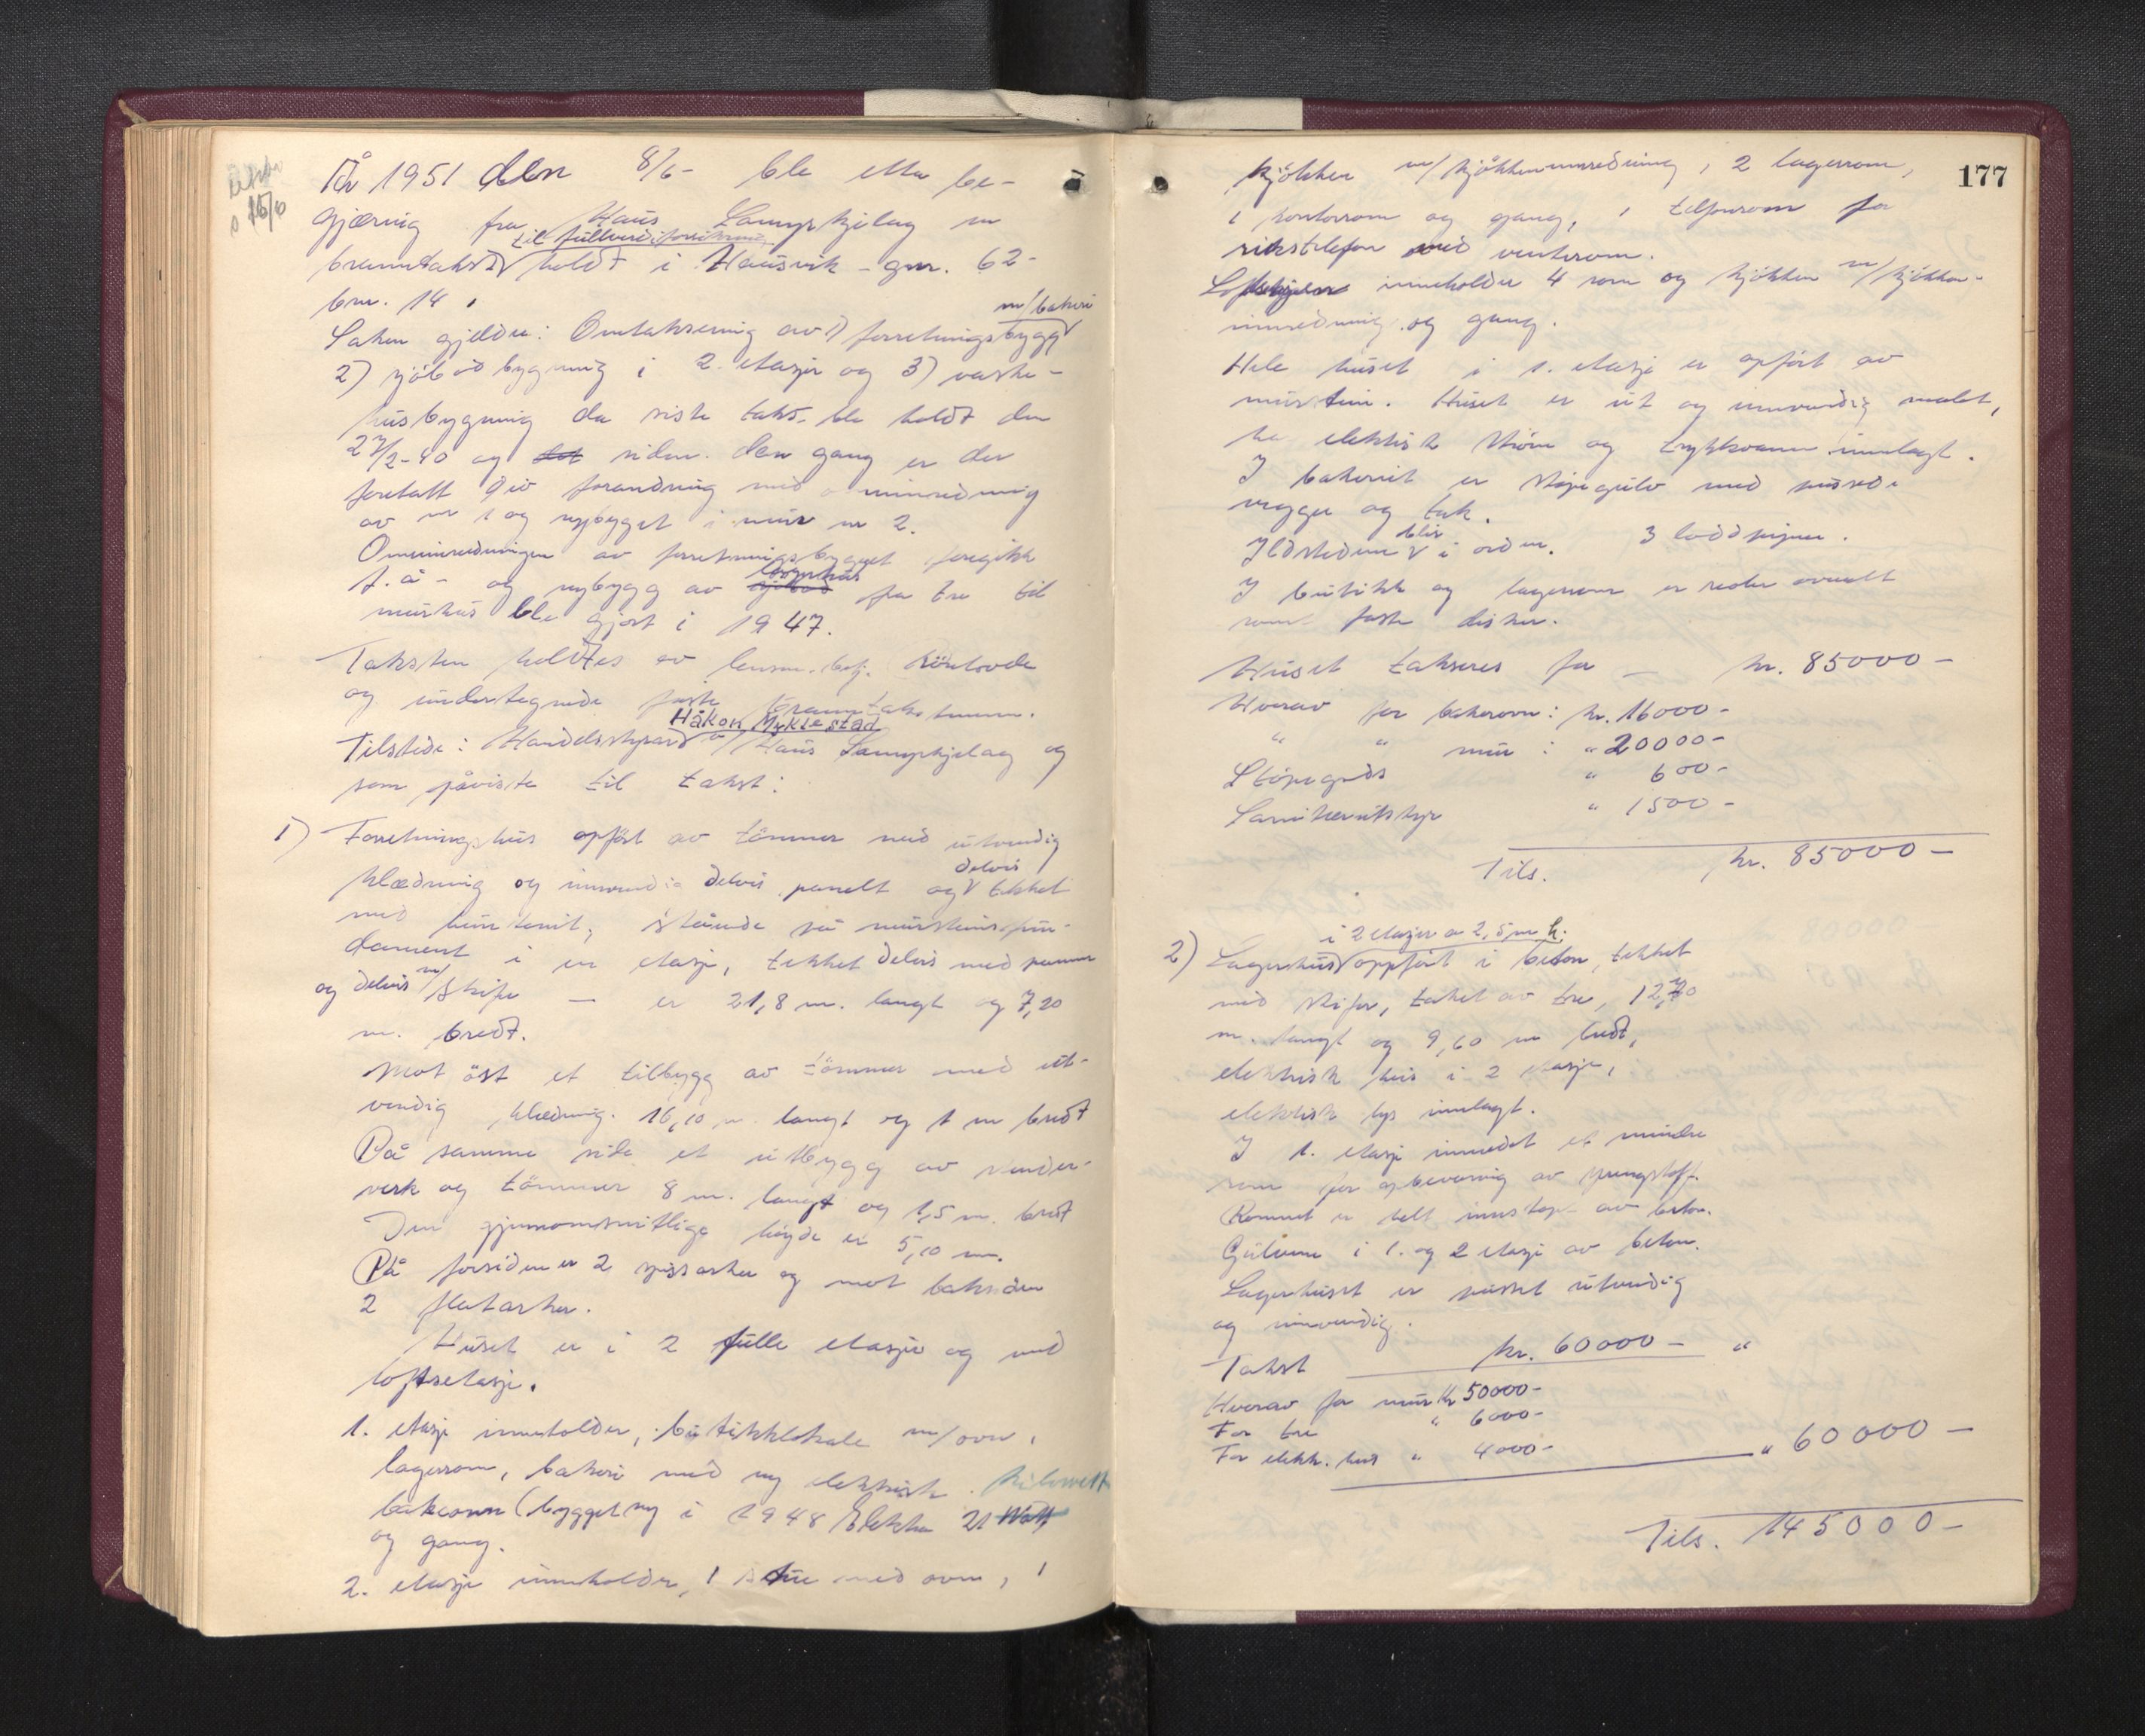 År 1951 den 8/6- ble etter be-
gjæring fra Haus Samyrkjelag en
til fullverdiforsikring
branntakst holdt i Hausvik - gnr. 62-
bnr. 14.
m/bakeri
Saken gjelder: Omtaksering av 1) forretningsbygg
2) sjöbodbygning i 2. etasjer og 3) vaske-
husbygning da siste takst ble holdt den
27/2-40 og det siden den gang er der
foretatt div forandring med ominredning
av nr 1 og nybygget i mur nr 2.
Ominnredningen av forretningsbygget foregikk
lagerhus
f. å - og nybygg av sjöbod fra tre til
murhus ble gjort i 1947.
Taksten holdtes av lensm. betj. Röselvde
og undertegnede faste branntakstmenn.
Håkon Myklestad
Tilstede: Handelsstyrar v/Haus Samyrkjelag og
som påviste til takst:
1) Forretningshus opfört av tömmer med utvendig
delvis
klædning og innvendig delvis panelt og tekket
med huntonit, stående på murstensfun-
dament i en etasje, tekket delvis med panner
og delvis m/skifer — er 21,8 m. langt og 7,20
m. bredt.
Mot öst et tilbygg av tömmer med ut-
vendig klædning. 16,10 m langt og 1 m bredt
På samme side et utbygg av binder-
verk og tömmer 8 m. langt og 1,5 m. bredt
Den gjennomsnittlige höyde er 5,10 m.
På forsiden er 2 spissarker og mot baksiden
2 flatarker.
Huset er i 2 fulle etasjer og med
loftsetasje.
1. etasje inneholder, butikklokale m/ovn,
lagerrom, bakeri med ny elektrisk kilowatt
bakerovn (bygget ny i 1948 Elektra 21 Watt
og gang.
2. etasje inneholder, 1 stue med ovn, 1
177
kjökken m/kjökkeninnredning, 2 lagerrom,
1 kontorrom og gang, 1 telefonrom for
rikstelefon med venterom.
inneholder 4 rom og kjökken m/kjökken-
innredning og gang.
Hele huset i 1. etasje er opfört av
murstein. Huset er ut og innvendig malet,
har elektrisk ström og trykkvann innlagt.
I bakeriet er stöpegulv med pussede
vegger og tak.
blir
Ildstedene i orden. 3 loddpiper.
I butikk og lagerrom er reoler overalt
samt faste disker.
Huset takseres for — kr. 85000-
Hvorav for bakerovn: kr. 16000-
" " mur : " 20000-
Stöpegods " 600-
Sanitærutstyr " 1500-
Tils. kr. 85000-
i 2 etasjer a 2,5 m h.
2) Lagerhus oppfört i beton, tekket
med skifer, taket av tre, 12,70
m. langt og 9,60 m bredt,
elektrisk heis i 2 etasje,
elektrisk lys innlagt.
I 1. etasje innredet et mindre
rom for opbevaring av sprengstoff.
Rommet er helt innstöpt av beton.
Gulvene i 1. og 2 etasje av beton.
Lagerhuset er pusset utvendig
og innvendig.
Takst kr. 60000- "
Hvorav for mur kr 50000-
For tre " 6000-
For elektr. heis " 4000- " 60000-
Tils. 145000-